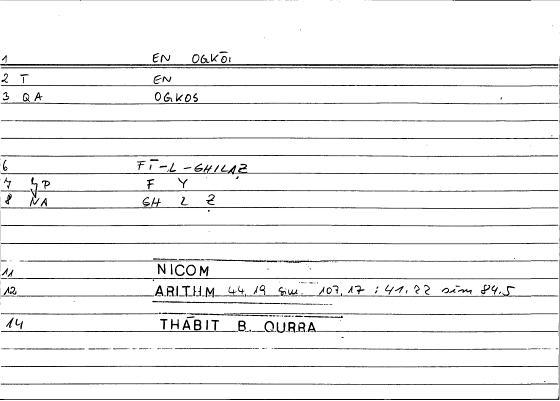 1 EN OGKŌI
2 T EN
3 QA OGKOS
6 FĪ-L-GHILAẒ
7 P F Y
8 NA GH L Ẓ
11 NICOM
12 ARITHM 44,19 sim. 107,17 : 41,22 sim 84,5
14 THĀBIT B. QURRA